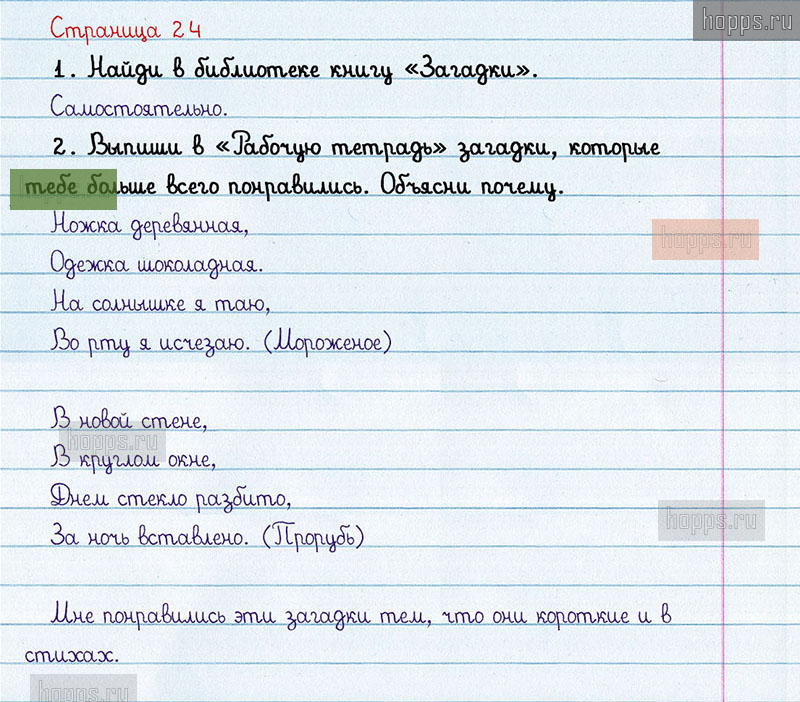 hopps.ru
Страница 24
1. Найди в библиотеке книгу «Загадки».
Самостоятельно.
2. Выпиши в «Рабочую тетрадь» загадки, которые
тебе больше всего понравились. Объясни почему.
Ножка деревянная,
hopps.ru
Одежка шоколадная.
На солнышке я таю,
Во рту я исчезаю. (Мороженое)
В новой стене,
hopps.ru
В круглом окне,
Днем стекло разбито,
hopps.ru
За ночь вставлено. (Прорубь)
Мне понравились эти загадки тем, что они короткие и в
стихах.
hopps.ru